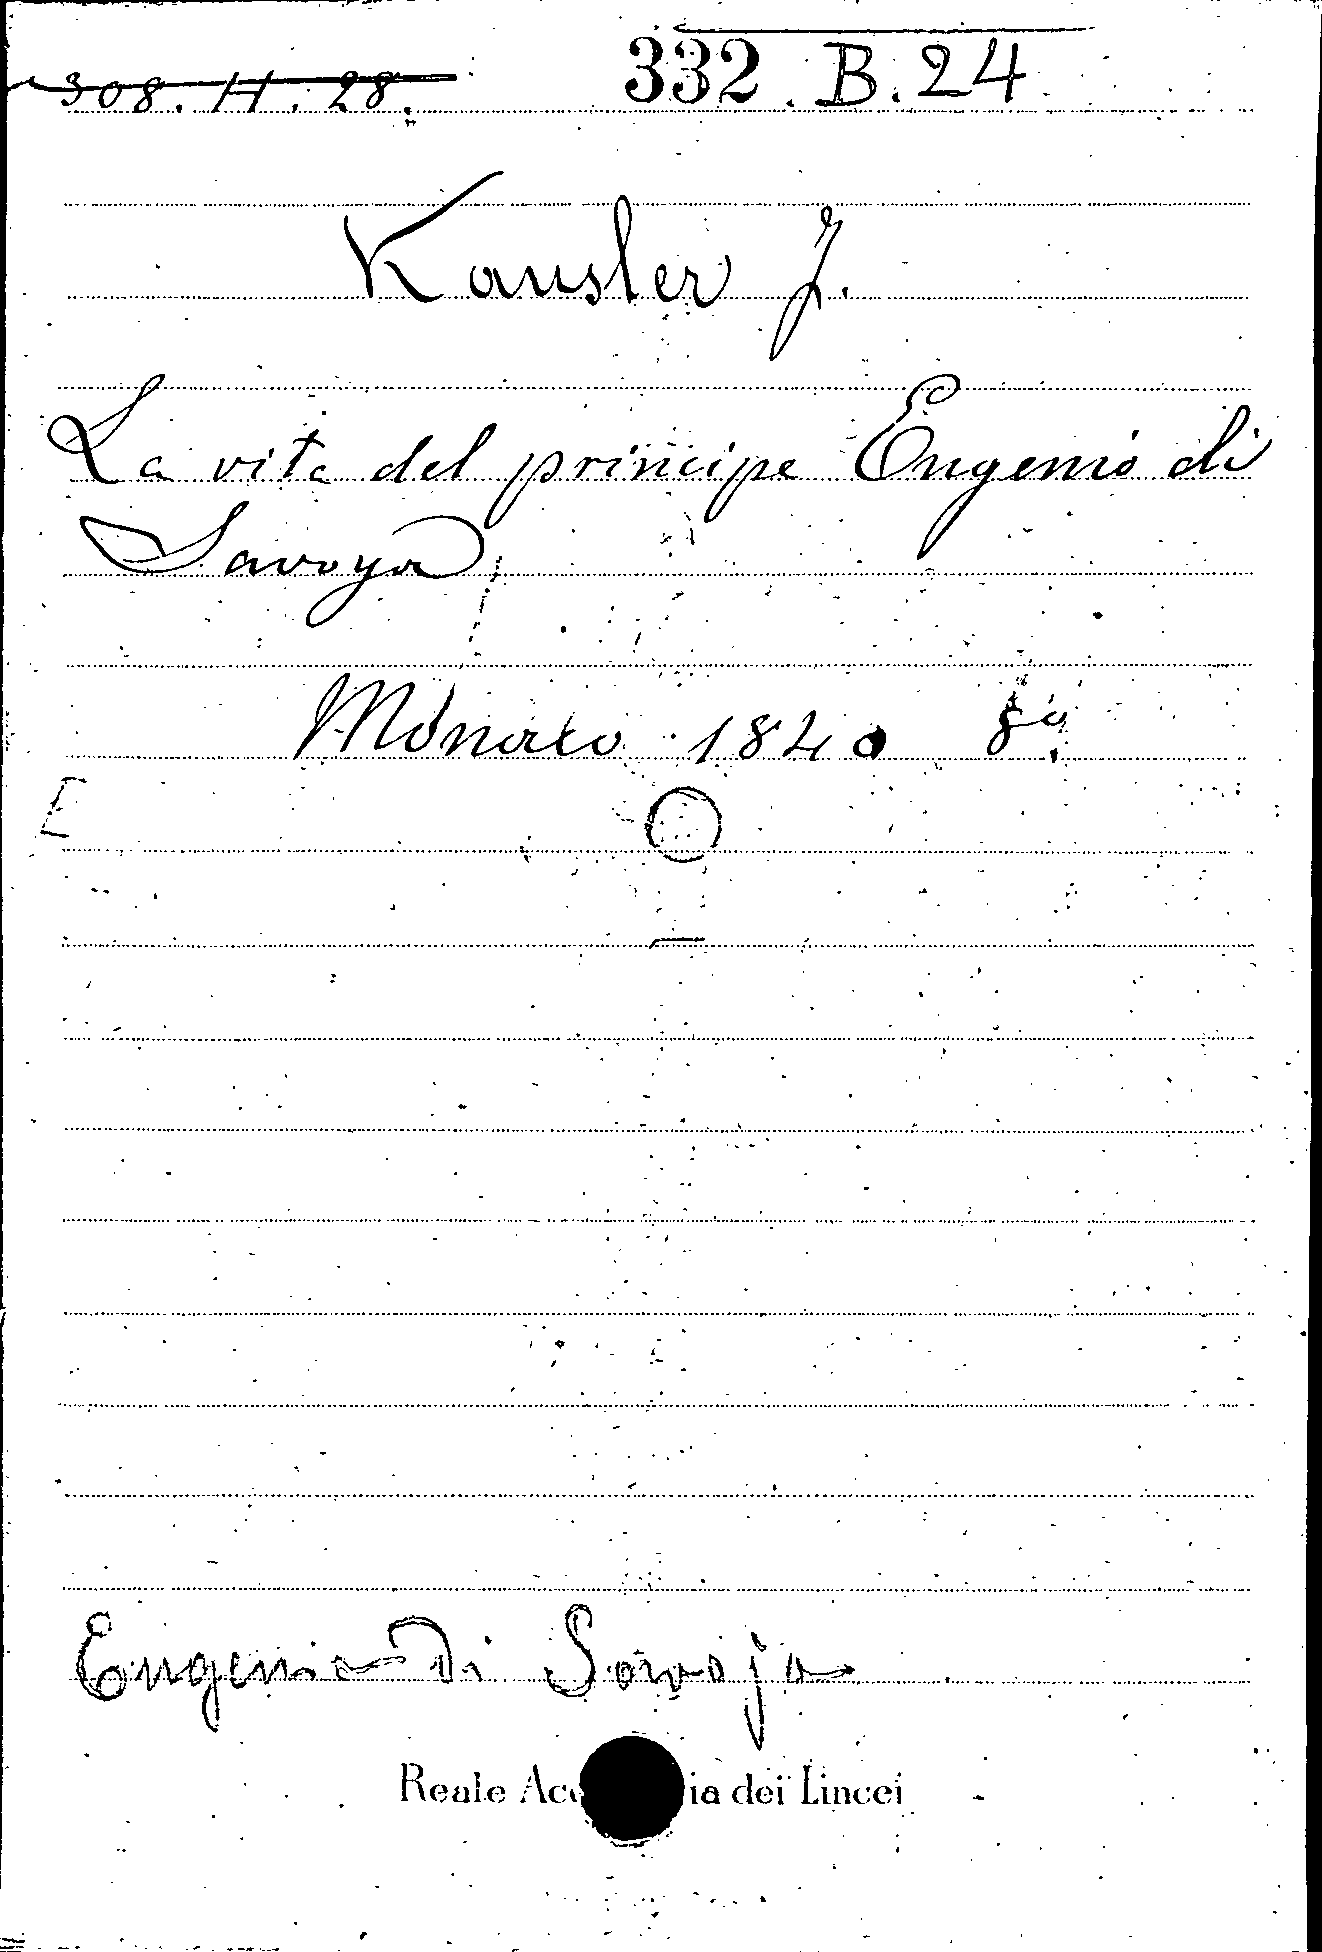 308. H. 28.
332. B. 24
Kausler J.
La vita del principe Eugenio di
Savoya
Monaco 1840 8º.
E
Eugenio di Savoja
Reale Acc ia dei Lincei